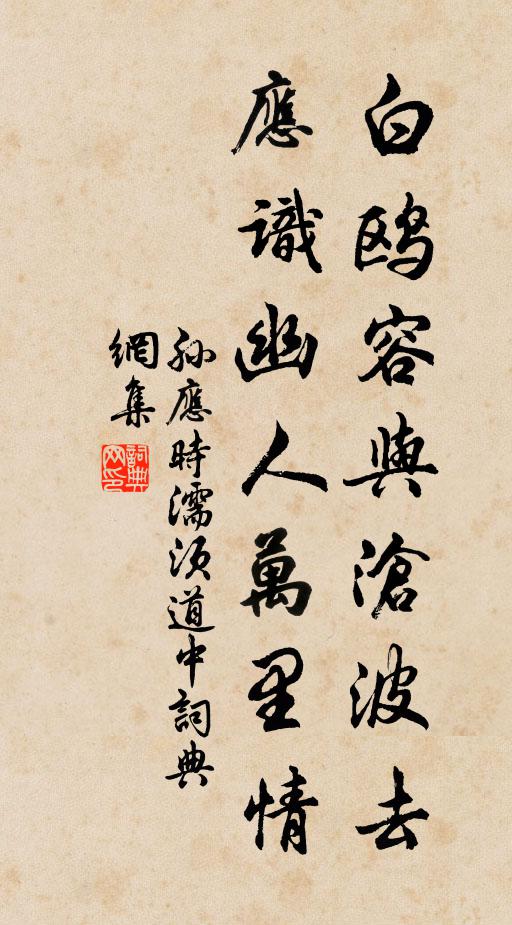 白鸥容與滄波去
應識幽人萬里情
孫應時濡須道中詞典
網集
詞典网印